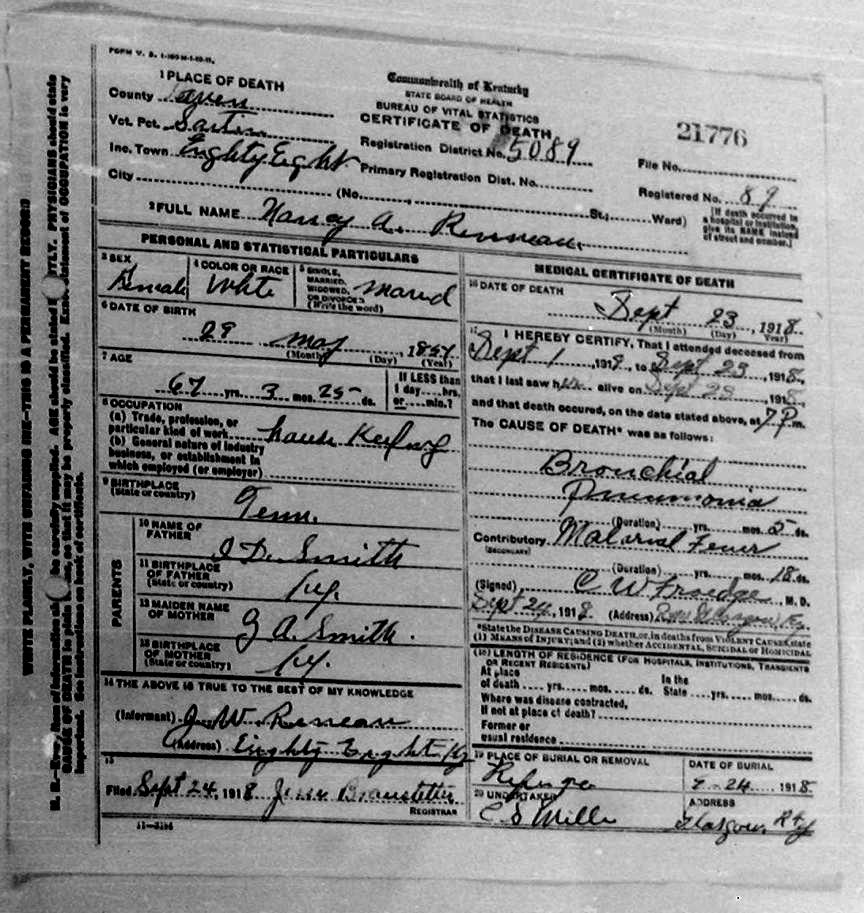 FORM V. S. 1-
1 PLACE OF DEATH
County
Vot. Pct.
Inc. Town Eighty Eight
City (No. St.; Ward)
Commonwealth of Kentucky
STATE BOARD OF HEALTH
BUREAU OF VITAL STATISTICS
CERTIFICATE OF DEATH
Registration District No. 5089
Primary Registration Dist. No.
21776
File No.
Registered No. 89
[If death occurred in
a hospital or institution,
give its NAME instead
of street and number.]
2 FULL NAME Nancy A. Renneau
PERSONAL AND STATISTICAL PARTICULARS
3 SEX
Female
4 COLOR OR RACE
White
5 SINGLE,
MARRIED,
WIDOWED,
OR DIVORCED
(Write the word)
Maried
6 DATE OF BIRTH
29 May
(Month) (Day) (Year)
7 AGE
67 yrs. 3 mos. 25 ds.
If LESS than
1 day, hrs.
or min.?
8 OCCUPATION
(a) Trade, profession, or
particular kind of work
(b) General nature of industry
business, or establishment in
which employed (or employer)
house
9 BIRTHPLACE
(State or country)
Tenn.
PARENTS
10 NAME OF
FATHER
Smith
11 BIRTHPLACE
OF FATHER
(State or country)
Ky.
12 MAIDEN NAME
OF MOTHER
A. Smith.
13 BIRTHPLACE
OF MOTHER
(State or country)
Ky.
14 THE ABOVE IS TRUE TO THE BEST OF MY KNOWLEDGE
(Informant) J. W. Reneau
(Address) Eighty Eight Ky
15
Filed Sept 24, 1918
REGISTRAR
11-3184
MEDICAL CERTIFICATE OF DEATH
16 DATE OF DEATH
Sept 23, 1918
(Month) (Day) Year)
17 I HEREBY CERTIFY, That I attended deceased from
Sept 1, 1918, to Sept 23, 1918,
that I last saw her alive on Sept 23, 1918,
and that death occured, on the date stated above, at 7 P m.
The CAUSE OF DEATH* was as follows:
Bronchial
Pneumonia
(Duration) yrs. mos. 5 ds.
Contributory Malarial Fever
(SECONDARY)
(Duration) yrs. mos. 18 ds.
(Signed) C W Froedge, M. D.
Sept 24, 1918 (Address)
*State the DISEASE CAUSING DEATH, or, in deaths from VIOLENT CAUSES, state
(1) MEANS OF INJURY; and (2) whether ACCIDENTAL, SUICIDAL or HOMICIDAL
(18) LENGTH OF RESIDENCE (FOR HOSPITALS, INSTITUTIONS, TRANSIENTS
OR RECENT RESIDENTS)
At place
of death yrs. mos. ds.
In the
State yrs. mos. ds.
Where was disease contracted,
if not at place of death?
Former or
usual residence
19 PLACE OF BURIAL OR REMOVAL
Refuge
DATE OF BURIAL
24 1918
20 UNDERTAKER
C S Mille
ADDRESS
Glasgow, Ky